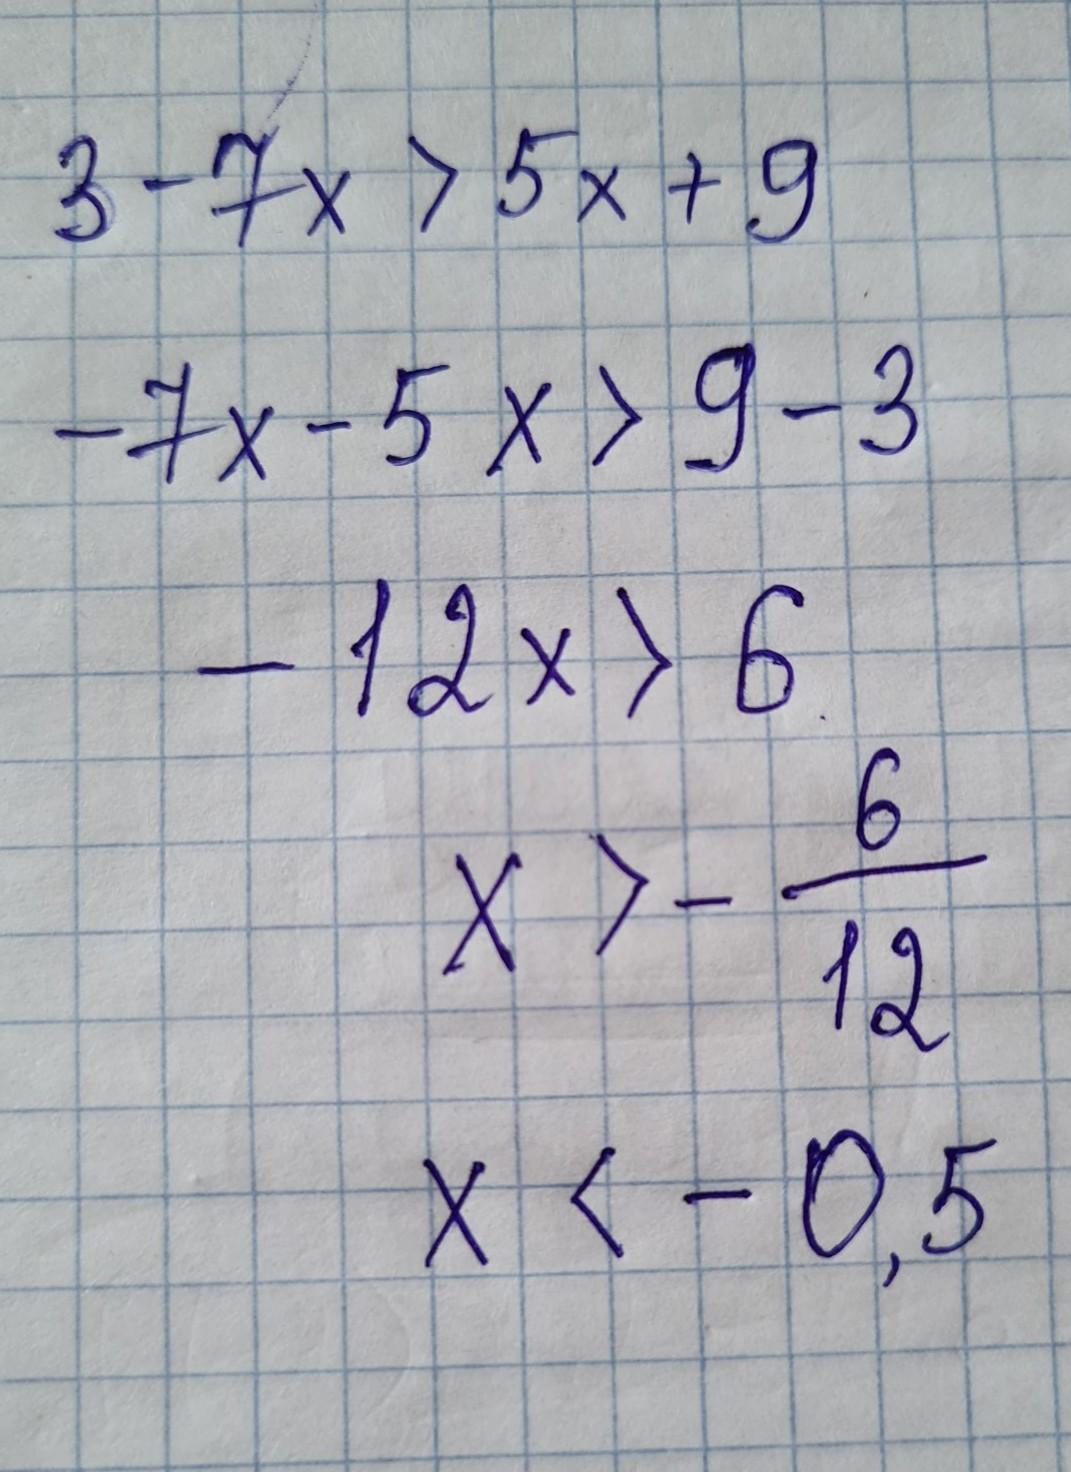 3-7x > 5x + 9
-7x - 5x > 9 - 3
-12x > 6
x > - 6/12
x < - 0,5